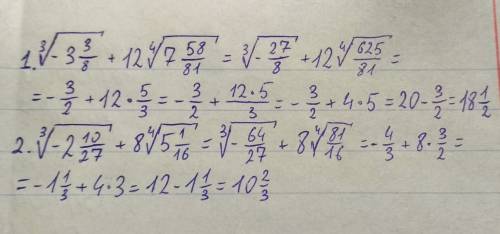 1. ∛(-3 3/8) + 12 ∜(7 58/81) = ∛(-27/8) + 12 ∜(625/81) =
= -3/2 + 12 · 5/3 = -3/2 + (12·5)/3 = -3/2 + 4·5 = 20 - 3/2 = 18 1/2
2. ∛(-2 10/27) + 8 ∜(5 1/16) = ∛(-64/27) + 8 ∜(81/16) = -4/3 + 8 · 3/2 =
= -1 1/3 + 4·3 = 12 - 1 1/3 = 10 2/3